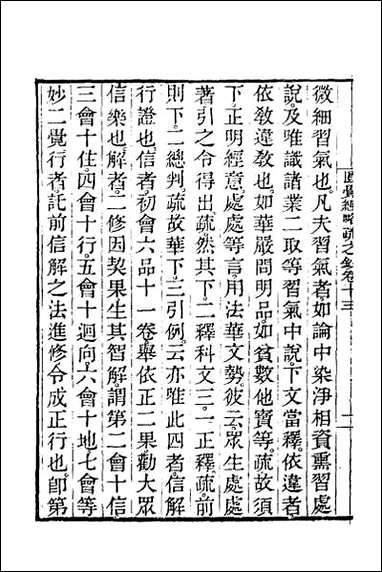 圓覺經略疏之鈔卷十三
微細習氣也。凡夫習氣者如論中染淨相資熏習處
說。及唯識諸業二取等習氣中說。下文當釋。依違者
依敎違敎也。如華嚴問明品如貧數他寶等。疏故須
下。正明經意。處處等言用法華文勢。彼云。眾生處處
著引之令得出。疏然其下。二釋科文三。一正釋。疏前
則下。二總判。疏故華下。三引例。云亦唯此四者。信解
行證也。信者初會六品十一卷。舉依正二果勸大眾
信樂也。解者。二修因契果生其智解。謂第二會十信
三會十住。四會十行。五會十迴向。六會十地。七會等
妙二覺行者。託前信解之法進修令成正行也。卽第